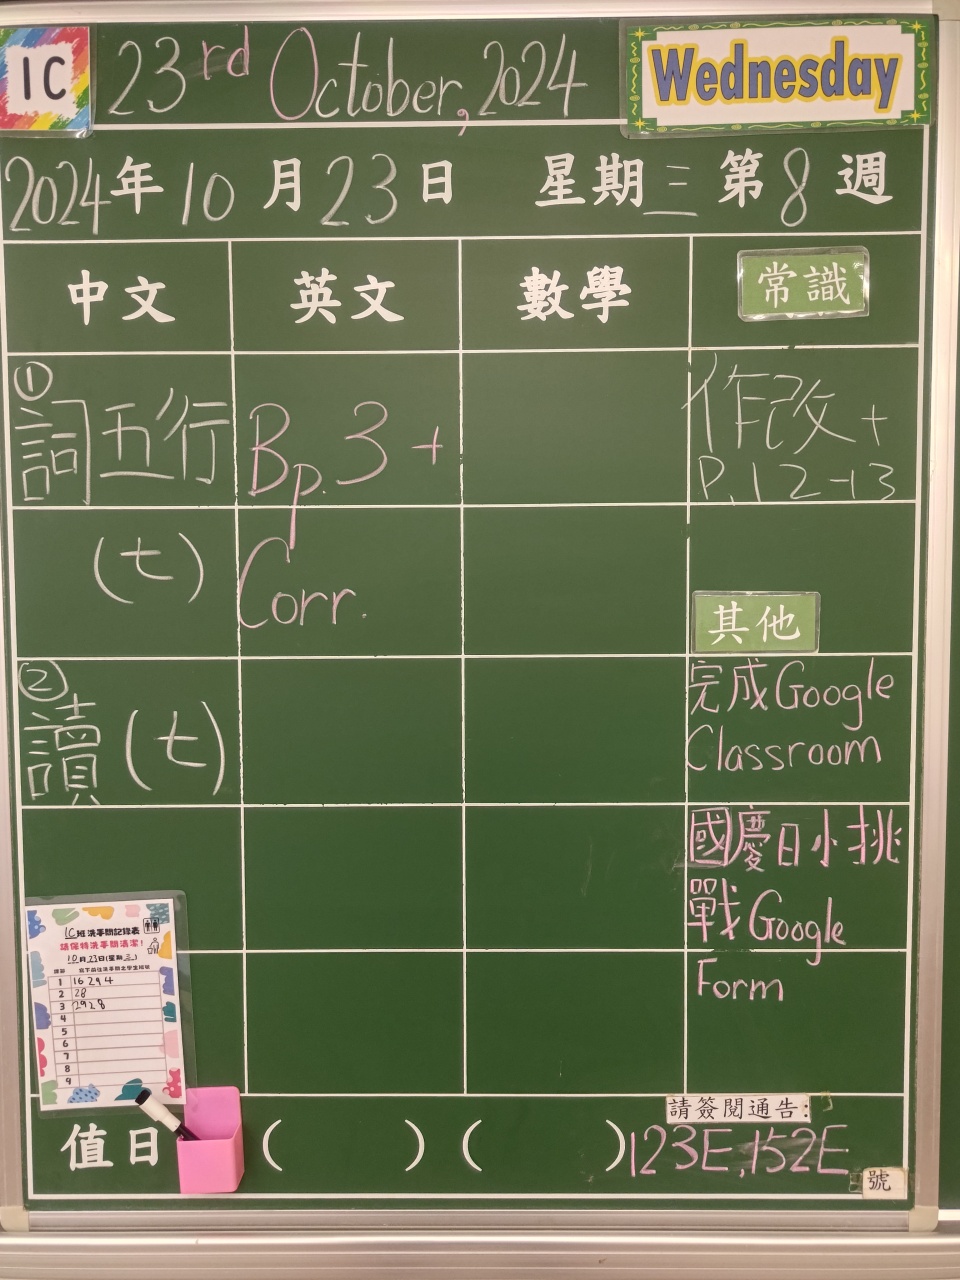 1C
23rd October, 2024
Wednesday
2024年10月23日 星期三 第8週
中文
英文
數學
常識
①
詞五行
(七)
②
讀(七)
Bp.3+
Corr.
作改+
P.12-13
其他
完成Google
Classroom
國慶日小挑
戰Google
Form
1C班洗手間記錄表
請保持洗手間清潔!
10月23日(星期三)
1 16 29 4
2 28
3 29 28
4
5
6
7
8
9
值日 ( ) ( )
請簽閱通告:
123E,152E
號